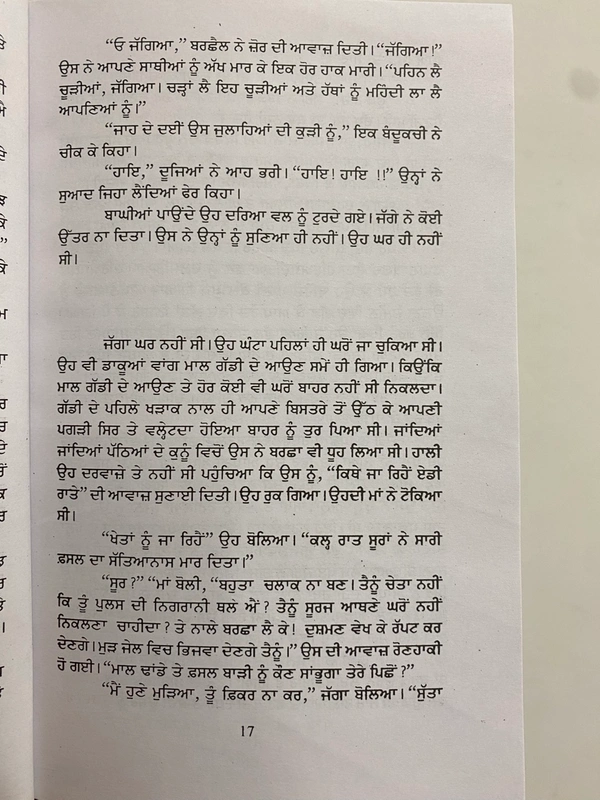 “ਓ ਜੱਗਿਆ,” ਬਰਛੈਲ ਨੇ ਜ਼ੋਰ ਦੀ ਆਵਾਜ਼ ਦਿਤੀ। “ਜੱਗਿਆ!”
ਉਸ ਨੇ ਆਪਣੇ ਸਾਥੀਆਂ ਨੂੰ ਅੱਖ ਮਾਰ ਕੇ ਇਕ ਹੋਰ ਹਾਕ ਮਾਰੀ। “ਪਹਿਨ ਲੈ
ਚੂੜੀਆਂ, ਜੱਗਿਆ। ਚੜ੍ਹਾਂ ਲੈ ਇਹ ਚੂੜੀਆਂ ਅਤੇ ਹੱਥਾਂ ਨੂੰ ਮਹਿੰਦੀ ਲਾ ਲੈ
ਆਪਣਿਆਂ ਨੂੰ।”
“ਜਾਹ ਦੇ ਦਈਂ ਉਸ ਜੁਲਾਹਿਆਂ ਦੀ ਕੁੜੀ ਨੂੰ,” ਇਕ ਬੰਦੂਕਚੀ ਨੇ
ਚੀਕ ਕੇ ਕਿਹਾ।
“ਹਾਇ,” ਦੂਜਿਆਂ ਨੇ ਆਹ ਭਰੀ। “ਹਾਇ! ਹਾਇ !!” ਉਨ੍ਹਾਂ ਨੇ
ਸੁਆਦ ਜਿਹਾ ਲੈਂਦਿਆਂ ਫੇਰ ਕਿਹਾ।
ਬਾਘੀਆਂ ਪਾਉਂਦੇ ਉਹ ਦਰਿਆ ਵਲ ਨੂੰ ਟੁਰਦੇ ਗਏ। ਜੱਗੇ ਨੇ ਕੋਈ
ਉੱਤਰ ਨਾ ਦਿਤਾ। ਉਸ ਨੇ ਉਨ੍ਹਾਂ ਨੂੰ ਸੁਣਿਆ ਹੀ ਨਹੀਂ। ਉਹ ਘਰ ਹੀ ਨਹੀਂ
ਸੀ।
ਜੱਗਾ ਘਰ ਨਹੀਂ ਸੀ। ਉਹ ਘੰਟਾ ਪਹਿਲਾਂ ਹੀ ਘਰੋਂ ਜਾ ਚੁਕਿਆ ਸੀ।
ਉਹ ਵੀ ਡਾਕੂਆਂ ਵਾਂਗ ਮਾਲ ਗੱਡੀ ਦੇ ਆਉਣ ਸਮੇਂ ਹੀ ਗਿਆ। ਕਿਉਂਕਿ
ਮਾਲ ਗੱਡੀ ਦੇ ਆਉਣ ਤੇ ਹੋਰ ਕੋਈ ਵੀ ਘਰੋਂ ਬਾਹਰ ਨਹੀਂ ਸੀ ਨਿਕਲਦਾ।
ਗੱਡੀ ਦੇ ਪਹਿਲੇ ਖੜਾਕ ਨਾਲ ਹੀ ਆਪਣੇ ਬਿਸਤਰੇ ਤੋਂ ਉੱਠ ਕੇ ਆਪਣੀ
ਪਗੜੀ ਸਿਰ ਤੇ ਵਲ੍ਹੇਟਦਾ ਹੋਇਆ ਬਾਹਰ ਨੂੰ ਤੁਰ ਪਿਆ ਸੀ। ਜਾਂਦਿਆਂ
ਜਾਂਦਿਆਂ ਪੱਠਿਆਂ ਦੇ ਕੁਨੂੰ ਵਿਚੋਂ ਉਸ ਨੇ ਬਰਛਾ ਵੀ ਧੂਹ ਲਿਆ ਸੀ। ਹਾਲੀ
ਉਹ ਦਰਵਾਜ਼ੇ ਤੇ ਨਹੀਂ ਸੀ ਪਹੁੰਚਿਆ ਕਿ ਉਸ ਨੂੰ, “ਕਿਥੇ ਜਾ ਰਿਹੈਂ ਏਡੀ
ਰਾਤੇ” ਦੀ ਆਵਾਜ਼ ਸੁਣਾਈ ਦਿਤੀ। ਉਹ ਰੁਕ ਗਿਆ। ਉਹਦੀ ਮਾਂ ਨੇ ਟੋਕਿਆ
ਸੀ।
“ਖੇਤਾਂ ਨੂੰ ਜਾ ਰਿਹੈਂ” ਉਹ ਬੋਲਿਆ। “ਕਲ੍ਹ ਰਾਤ ਸੂਰਾਂ ਨੇ ਸਾਰੀ
ਫ਼ਸਲ ਦਾ ਸੱਤਿਆਨਾਸ ਮਾਰ ਦਿਤਾ।”
“ਸੂਰ?” “ਮਾਂ ਬੋਲੀ, “ਬਹੁਤਾ ਚਲਾਕ ਨਾ ਬਣ। ਤੈਨੂੰ ਚੇਤਾ ਨਹੀਂ
ਕਿ ਤੂੰ ਪੁਲਸ ਦੀ ਨਿਗਰਾਨੀ ਥਲੇ ਐਂ? ਤੈਨੂੰ ਸੂਰਜ ਆਥਣੇ ਘਰੋਂ ਨਹੀਂ
ਨਿਕਲਣਾ ਚਾਹੀਦਾ? ਤੇ ਨਾਲੇ ਬਰਛਾ ਲੈ ਕੇ! ਦੁਸ਼ਮਣ ਵੇਖ ਕੇ ਰੱਪਟ ਕਰ
ਦੇਣਗੇ। ਮੁੜ ਜੇਲ ਵਿਚ ਭਿਜਵਾ ਦੇਣਗੇ ਤੈਨੂੰ।” ਉਸ ਦੀ ਆਵਾਜ਼ ਰੋਣਹਾਕੀ
ਹੋ ਗਈ। “ਮਾਲ ਢਾਂਡੇ ਤੇ ਫ਼ਸਲ ਬਾੜੀ ਨੂੰ ਕੌਣ ਸਾਂਭੂਗਾ ਤੇਰੇ ਪਿਛੋਂ?”
“ਮੈਂ ਹੁਣੇ ਮੁੜਿਆ, ਤੂੰ ਫ਼ਿਕਰ ਨਾ ਕਰ,” ਜੱਗਾ ਬੋਲਿਆ। “ਸੁੱਤਾ
17